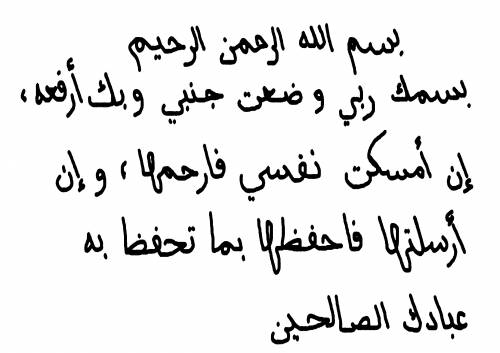 بسم الله الرحمن الرحيم
بسمك ربي وضعت جنبي وبك أرفعه،
إن أمسكت نفسي فارحمها، وإن
أرسلتها فاحفظها بما تحفظ به
عبادك الصالحين